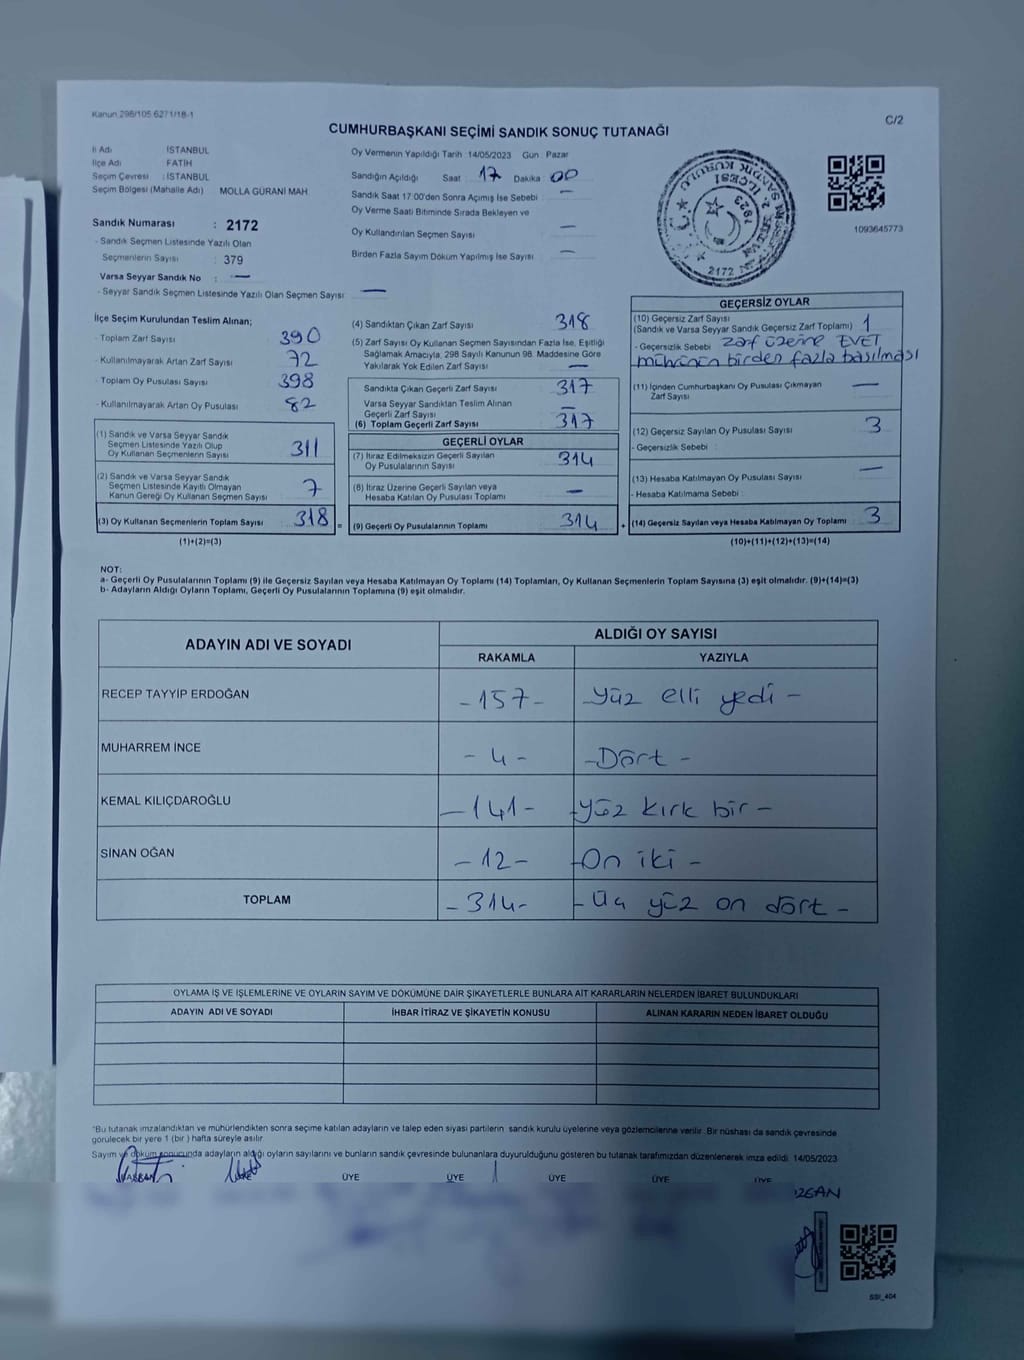 Kanun 298/105 6271/18-1
C/2
CUMHURBAŞKANI SEÇİMİ SANDIK SONUÇ TUTANAĞI
İl Adı İSTANBUL
İlçe Adı FATİH
Seçim Çevresi : İSTANBUL
Seçim Bölgesi (Mahalle Adı) MOLLA GÜRANİ MAH
Sandık Numarası : 2172
- Sandık Seçmen Listesinde Yazılı Olan
Seçmenlerin Sayısı : 379
Varsa Seyyar Sandık No : —
- Seyyar Sandık Seçmen Listesinde Yazılı Olan Seçmen Sayısı: —
Oy Vermenin Yapıldığı Tarih 14/05/2023 Gün Pazar
Sandığın Açıldığı Saat 17 Dakika 00
Sandık Saat 17.00'den Sonra Açımış İse Sebebi : —
Oy Verme Saati Bitiminde Sırada Bekleyen ve
Oy Kullandırılan Seçmen Sayısı —
Birden Fazla Sayım Döküm Yapılmış İse Sayısı : —
2172
1093645773
İlçe Seçim Kurulundan Teslim Alınan;
- Toplam Zarf Sayısı 390
- Kullanılmayarak Artan Zarf Sayısı 72
- Toplam Oy Pusulası Sayısı 398
- Kullanılmayarak Artan Oy Pusulası 82
(1) Sandık ve Varsa Seyyar Sandık
Seçmen Listesinde Yazılı Olup
Oy Kullanan Seçmenlerin Sayısı 311
(2) Sandık ve Varsa Seyyar Sandık
Seçmen Listesinde Kayıtlı Olmayan
Kanun Gereği Oy Kullanan Seçmen Sayısı 7
(3) Oy Kullanan Seçmenlerin Toplam Sayısı 318 =
(1)+(2)=(3)
(4) Sandıktan Çıkan Zarf Sayısı 318
(5) Zarf Sayısı Oy Kullanan Seçmen Sayısından Fazla İse, Eşitliği
Sağlamak Amacıyla, 298 Sayılı Kanunun 98. Maddesine Göre
Yakılarak Yok Edilen Zarf Sayısı —
Sandıkta Çıkan Geçerli Zarf Sayısı 317
Varsa Seyyar Sandıktan Teslim Alınan
Geçerli Zarf Sayısı —
(6) Toplam Geçerli Zarf Sayısı 317
GEÇERLİ OYLAR
(7) İtiraz Edilmeksizin Geçerli Sayılan
Oy Pusulalarının Sayısı 314
(8) İtiraz Üzerine Geçerli Sayılan veya
Hesaba Katılan Oy Pusulası Toplamı —
(9) Geçerli Oy Pusulalarının Toplamı 314 +
GEÇERSİZ OYLAR
(10) Geçersiz Zarf Sayısı
(Sandık ve Varsa Seyyar Sandık Geçersiz Zarf Toplamı) 1
- Geçersizlik Sebebi zarf üzerine EVET
mührünün birden fazla basılması
(11) İçinden Cumhurbaşkanı Oy Pusulası Çıkmayan
Zarf Sayısı —
(12) Geçersiz Sayılan Oy Pusulası Sayısı 3
- Geçersizlik Sebebi :
(13) Hesaba Katılmayan Oy Pusulası Sayısı —
- Hesaba Katılmama Sebebi
(14) Geçersiz Sayılan veya Hesaba Katılmayan Oy Toplamı 3
(10)+(11)+(12)+(13)=(14)
NOT:
a- Geçerli Oy Pusulalarının Toplamı (9) ile Geçersiz Sayılan veya Hesaba Katılmayan Oy Toplamı (14) Toplamları, Oy Kullanan Seçmenlerin Toplam Sayısına (3) eşit olmalıdır. (9)+(14)=(3)
b- Adayların Aldığı Oyların Toplamı, Geçerli Oy Pusulalarının Toplamına (9) eşit olmalıdır.
ADAYIN ADI VE SOYADI
ALDIĞI OY SAYISI
RAKAMLA YAZIYLA
RECEP TAYYİP ERDOĞAN -157- -yüz elli yedi-
MUHARREM İNCE -4- -Dört-
KEMAL KILIÇDAROĞLU -141- -yüz kırk bir-
SİNAN OĞAN -12- -On iki-
TOPLAM -314- -Üç yüz on dört-
OYLAMA İŞ VE İŞLEMLERİNE VE OYLARIN SAYIM VE DÖKÜMÜNE DAİR ŞİKAYETLERLE BUNLARA AİT KARARLARIN NELERDEN İBARET BULUNDUKLARI
ADAYIN ADI VE SOYADI İHBAR İTİRAZ VE ŞİKAYETİN KONUSU ALINAN KARARIN NEDEN İBARET OLDUĞU
"Bu tutanak imzalandıktan ve mühürlendikten sonra seçime katılan adayların ve talep eden siyasi partilerin sandık kurulu üyelerine veya gözlemcilerine verilir. Bir nüshası da sandık çevresinde
görülecek bir yere 1 (bir) hafta süreyle asılır.
Sayım ve döküm sonucunda adayların aldığı oyların sayılarını ve bunların sandık çevresinde bulunanlara duyurulduğunu gösteren bu tutanak tarafımızdan düzenlenerek imza edildi. 14/05/2023
BAŞKAN ÜYE ÜYE ÜYE ÜYE ÜYE
SSI_404